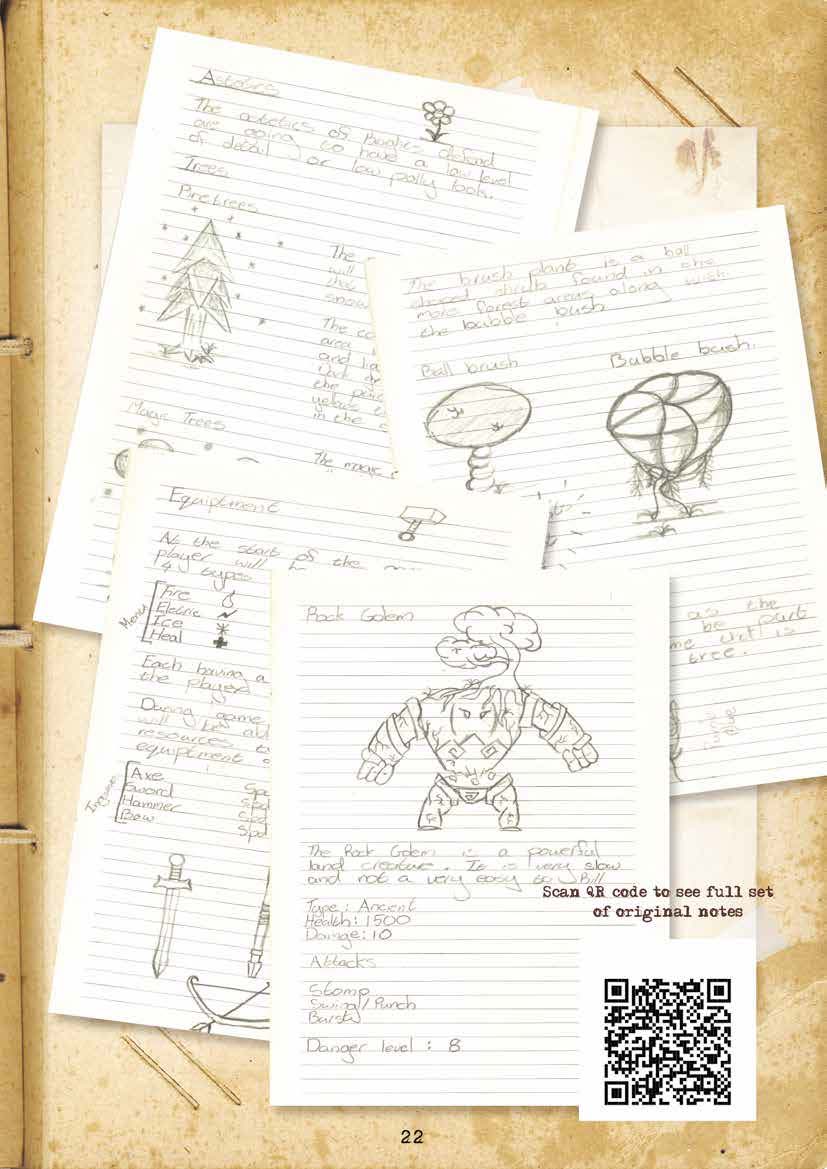 The
of
are going to have a low level
of detail or low polly look.
Trees
Pinetrees
The
will
that
snow
The co
area
and
the
yellow
in the
Magic Trees
The magic
The brush plant is a ball
shaped shrub found in the
more forest areas along with
the bubble bush
Ball brush
Bubble bush.
as the
be part
me that is
tree.
Equiptment
At the start of the
player will
14 types
Fire
Electric
Ice
Heal
Each having a
the player
During game
will be abl
resources to
equiptment
Axe
Sword
Hammer
Bow
Rock Golem
The Rock Golem is a powerful
land creature. It is very slow
and not a very easy to kill
Type: Ancient
Health: 1500
Damge: 10
Attacks
Stomp
Swing/Punch
Burst
Danger level : 8
Scan QR code to see full set
of original notes
22